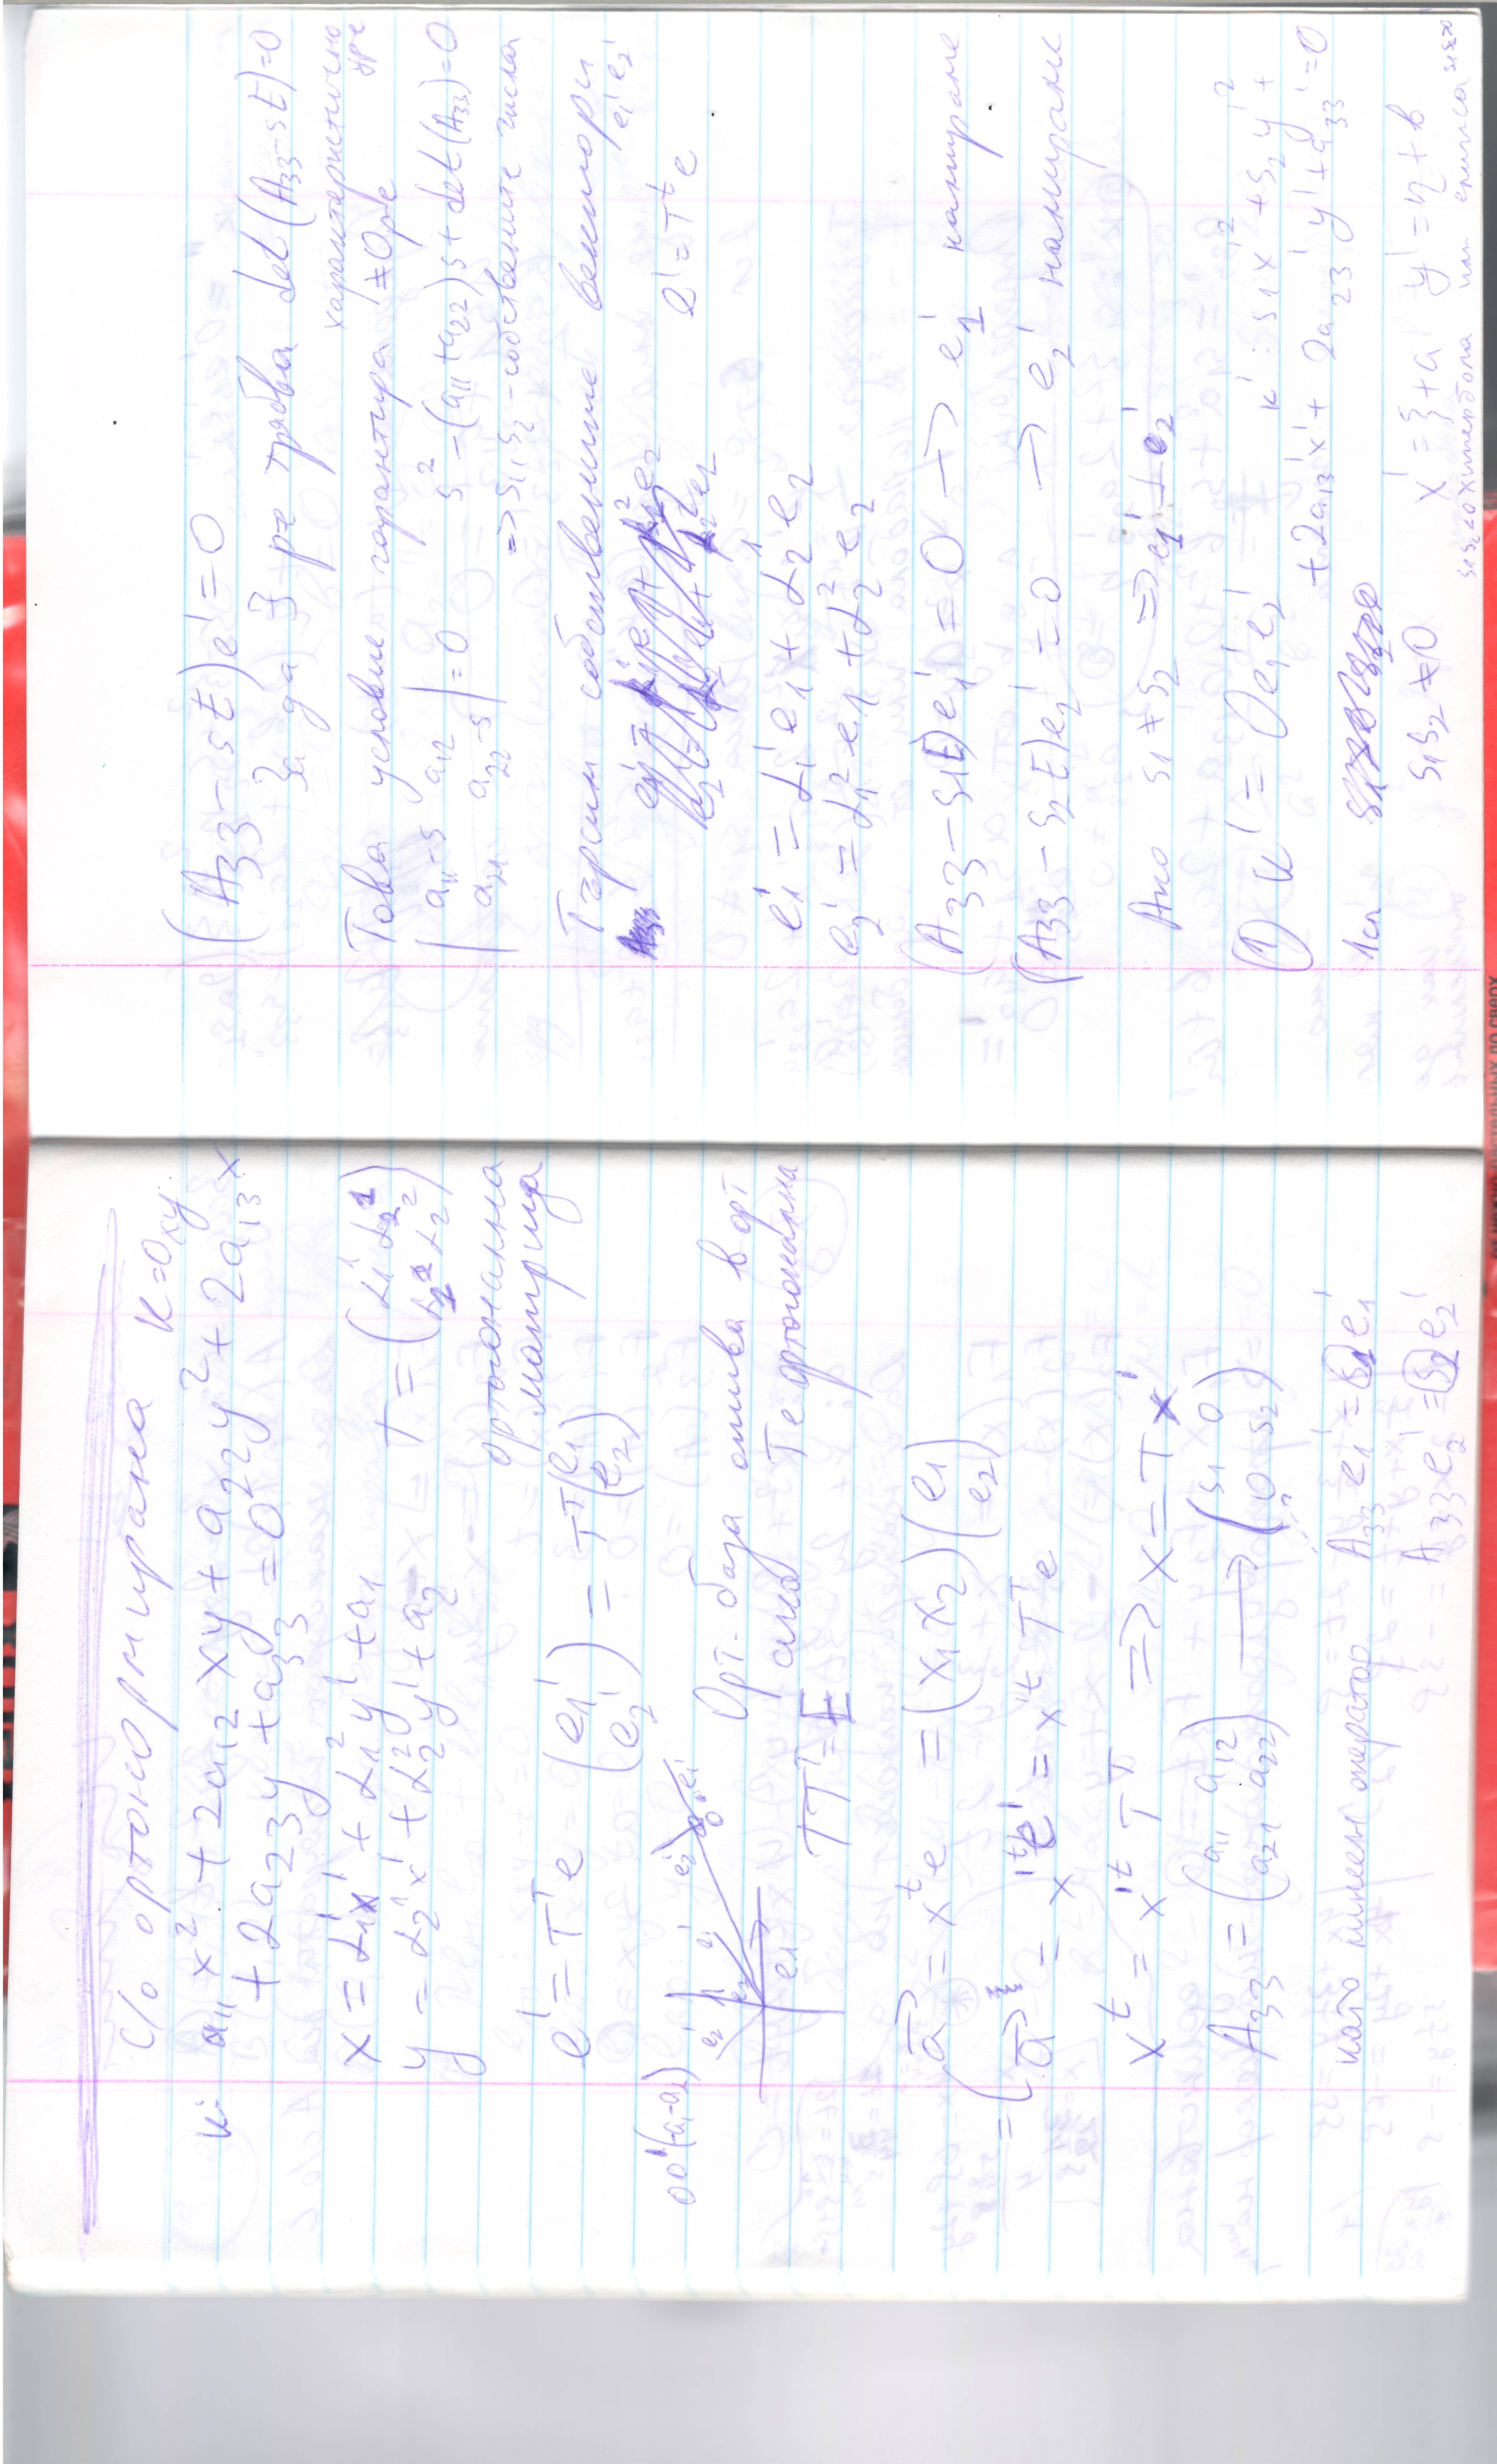 с/о ортонормирана K=Oxy
k: a₁₁x² + 2a₁₂xy + a₂₂y² + 2a₁₃x
+ 2a₂₃y + a₃₃ = 0
x = α₁¹x' + α₁²y' + a₁
y = α₂¹x' + α₂²y' + a₂
T = (α₁¹ α₂¹
α₁² α₂²)
ортонанна
матрица
e' = Tᵀe (e₁'
e₂') = Tᵀ(e₁
e₂)
OO'(a₁-a₂)
e₂' e₁' e₁
Орт. база отива в орт
след T е ортогонална
TTᵀ = E
a⃗ = xᵗe = (x₁x₂)(e₁
e₂)
=(a⃗ = x'ᵗe' = x'ᵗ Tᵀe
xᵗ = x'ᵗ Tᵀ => x = Tx'
A₃₃ = (a₁₁ a₁₂
a₂₁ a₂₂) → (s₁ 0
0 s₂)
като линеен оператор A₃₃e₁' = s₁e₁'
A₃₃e₂' = s₂e₂'
(A₃₃ - sE)e' = 0
За да ∃ ре трябва det(A₃₃-sE)=0
характеристично
ур-е
Това условие гарантира ≠0 ре
|a₁₁-s a₁₂
a₂₁ a₂₂-s| = 0 s² - (a₁₁+a₂₂)s + det(A₃₃)=0
=> s₁ s₂ - собствените числа
Търсим собствените вектори
e₁' e₂'
e' = Tᵗe
e₁' = α₁¹e₁ + α₂¹e₂
e₂' = α₁²e₁ + α₂²e₂
(A₃₃ - s₁E)e₁' = 0 → e₁' намираме
(A₃₃ - s₂E)e₂' = 0 → e₂' намираме
Ако s₁ ≠ s₂ => e₁' ⊥ e₂'
(1) K' = Oe₁'e₂' k': s₁x'² + s₂y'² +
+ 2a₁₃'x' + 2a₂₃'y' + a₃₃' = 0
1сл
s₁s₂ ≠ 0 x' = ξ + a y' = η + b
s₁s₂<0 хипербола или елипса s₁s₂>0